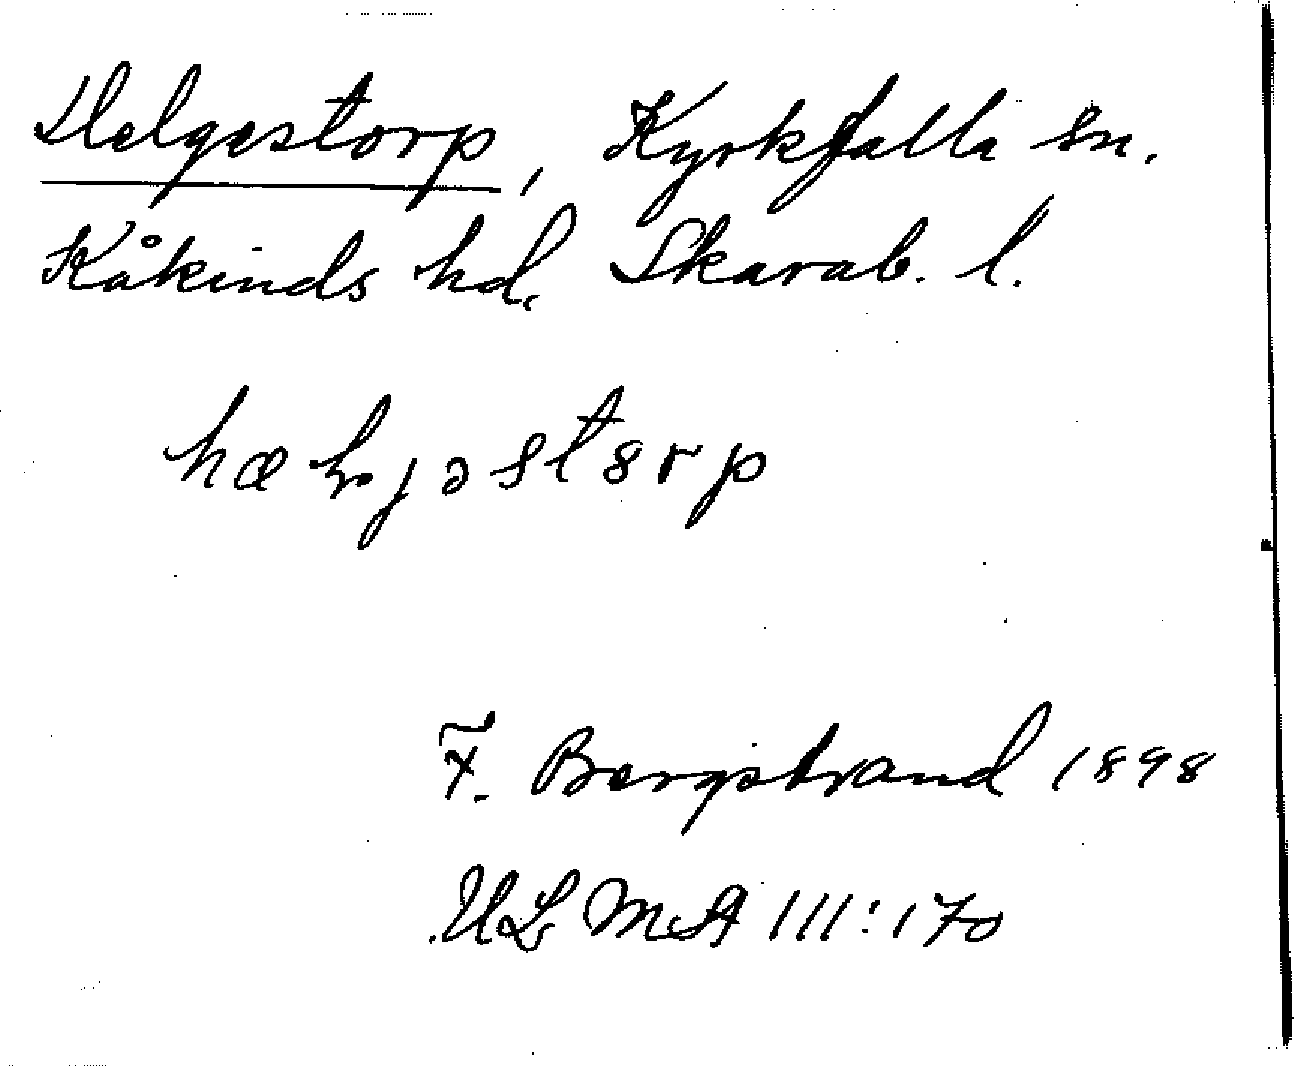 Helgestorp, Kyrkefalla sn.
Kåkinds hd. Skarab. l.
hæljəstɵrp
F. Bergstrand 1898
ULMA 111:170